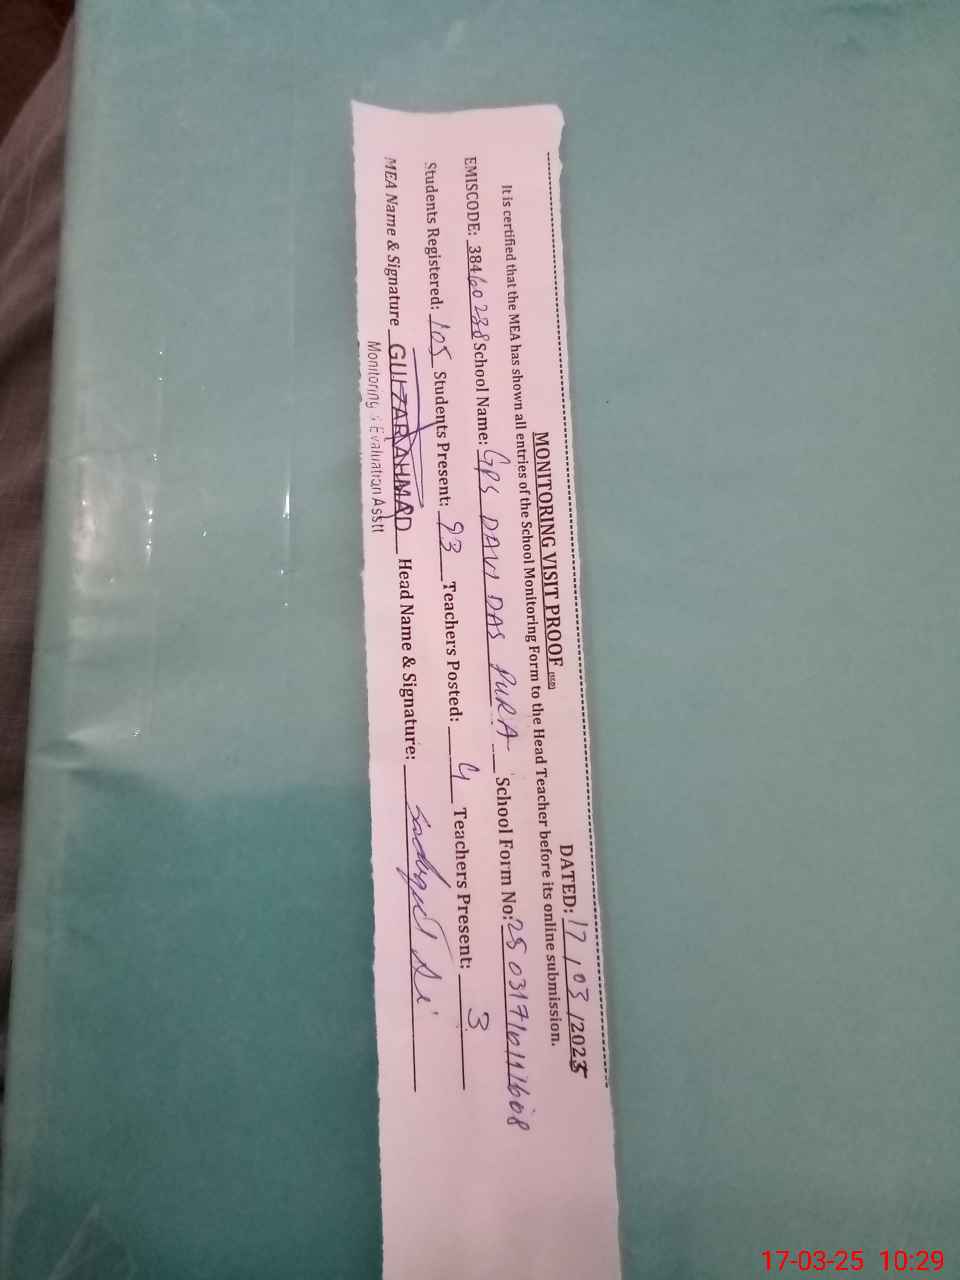 MONITORING VISIT PROOF DATED: 17/03/2025
It is certified that the MEA has shown all entries of the School Monitoring Form to the Head Teacher before its online submission.
EMISCODE: 38460238 School Name: GPS DAVI DAS PURA School Form No:
Students Registered: 105 Students Present: 93 Teachers Posted: 4 Teachers Present: 3
MEA Name & Signature GULZAR AHMAD Head Name & Signature:
Monitoring & Evaluation Asstt
17-03-25 10:29